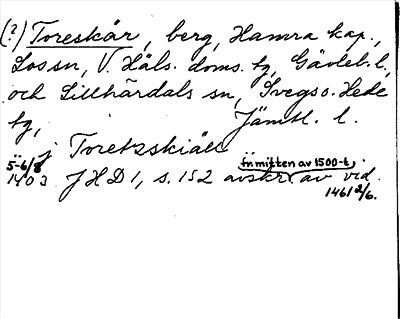 (?) Toreskår, berg, Hamra kap.,
Los sn, V. Häls. doms. tg, Gävleb. l,
och Lillhärdals sn, Svegs o. Hede
tg, Jämtl. l.
j Toretzskiäll
5-6/8 fr. mitten av 1500-t.
1403 JHD 1, s. 152 avskr. av vid.
1461 2/6.